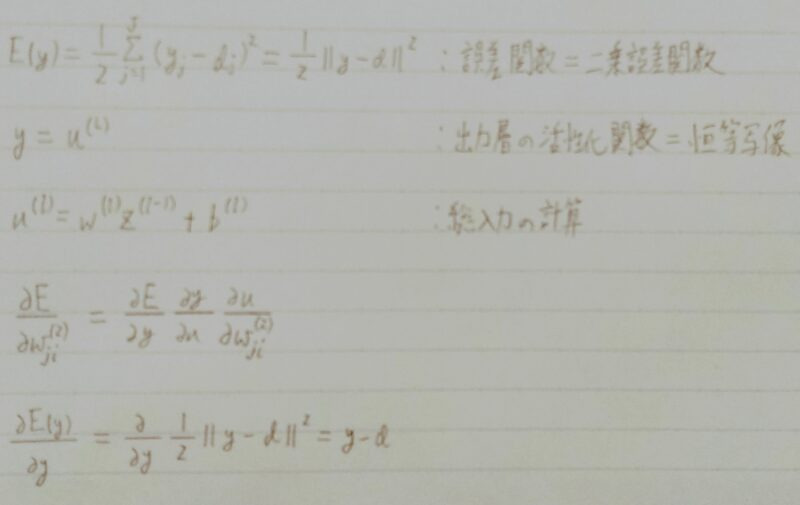 E(y) = 1/2 Σ_{j=1}^{J} (y_j - d_j)² = 1/2 ||y - d||² : 誤差関数 = 二乗誤差関数
y = u^(L) : 出力層の活性化関数 = 恒等写像
u^(l) = w^(l) z^(l-1) + b^(l) : 総入力の計算
∂E/∂w_ji^(2) = ∂E/∂y ∂y/∂u ∂u/∂w_ji^(2)
∂E(y)/∂y = ∂/∂y 1/2 ||y - d||² = y - d